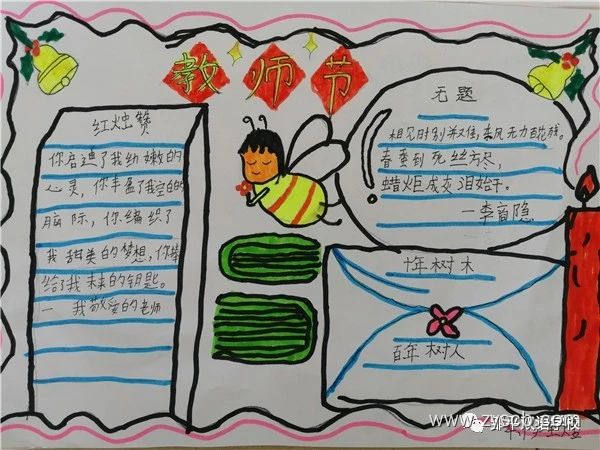 教师节
红烛赞
你启迪了我幼嫩的
心灵，你丰盈了我空的
脑际，你编织了
我甜美的梦想，你带
给了我未来的钥匙。
—我敬爱的老师
无题
相见时别难又难，东风无力百花残。
春蚕到死丝方尽，
蜡炬成灰泪始干。
—李商隐
十年树木
百年树人
www.zyscb.com